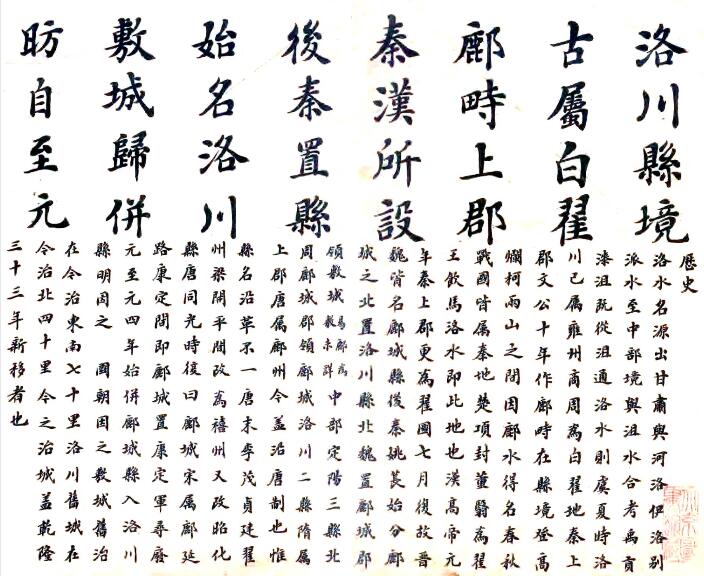 洛川縣境
古屬白翟
鄜畤上郡
秦漢所設
後秦置縣
始名洛川
敷城歸併
昉自至元
歷史
洛水名源出甘肅與河洛伊洛別
派水至中部境與沮水合考禹貢
漆沮既從沮通洛水則虞夏時洛
川已屬雍州商周為白翟地秦上
郡文公十年作鄜畤在縣境登高
爛柯兩山之間因鄜水得名春秋
戰國皆屬秦地楚項封董翳為翟
王飲馬洛水即此地也漢高帝元
年秦上郡更為翟國七月復故晉
魏皆名鄜城縣後秦姚萇始分鄜
城之北置洛川縣北魏置鄜城郡
領敷城易鄜為敷未詳中部定陽三縣北
周鄜城郡領鄜城洛川二縣隋屬
上郡唐屬鄜州今蓋沿唐制也惟
縣名沿革不一唐末李茂貞建翟
州梁開平間改為禧州又改昭化
縣唐同光時復曰鄜城宋屬鄜延
路康定間即鄜城置康定軍尋廢
元至元四年始併鄜城縣入洛川
縣明因之 國朝因之敷城舊治
在今治東南七十里洛川舊城在
今治北四十里今之治城蓋乾隆
三十三年新移者也